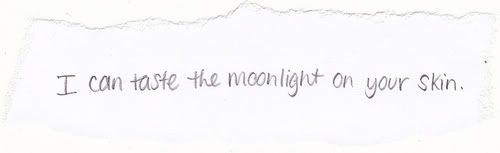 I can taste the moonlight on your skin.